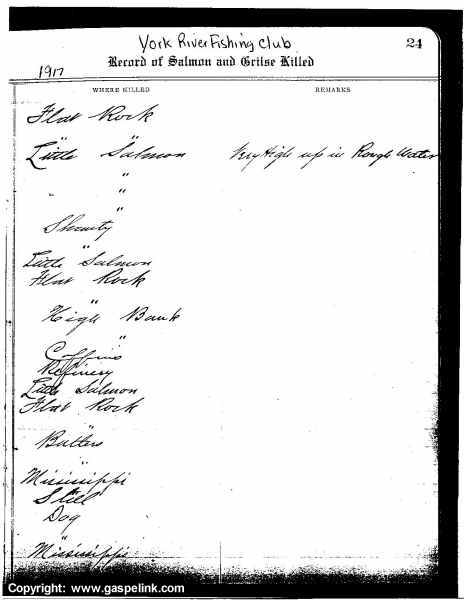 York River Fishing Club
24
Record of Salmon and Grilse Killed
1917
WHERE KILLED REMARKS
Flat Rock
"
Little Salmon Very High up in Rough Water
" "
"
"
Shanty
"
Little Salmon
Flat Rock
"
High Bank
"
Coffins
Refinery
Little Salmon
Flat Rock
"
Butlers
"
Mississippi
Still
Dog
"
Mississippi
Copyright: www.gaspelink.com